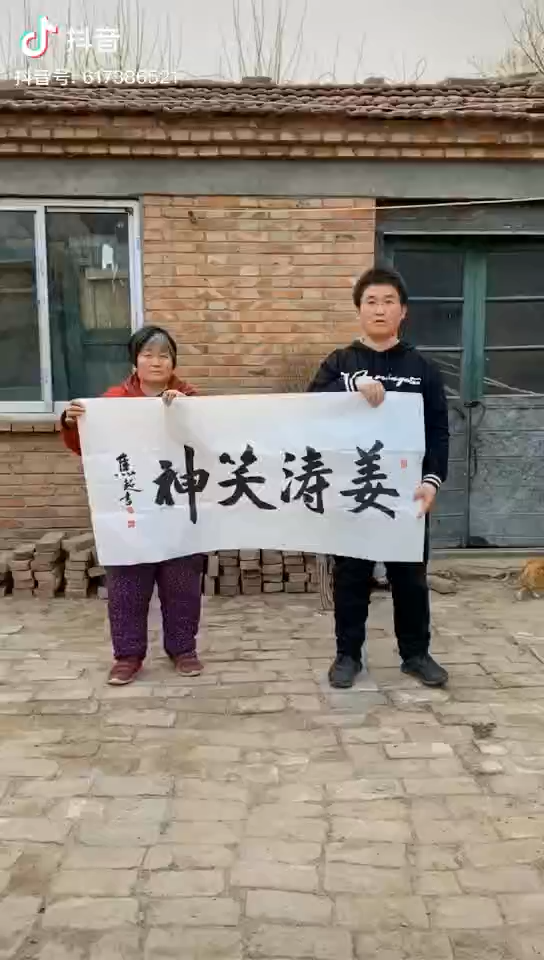 抖音
抖音号: 617386521
姜涛笑神
焦 书